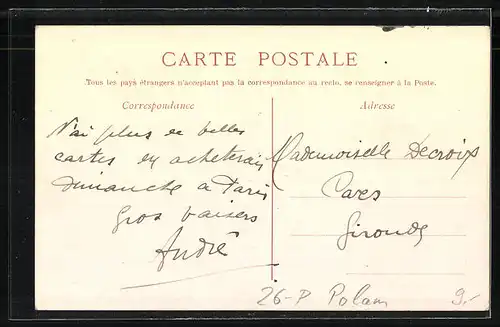 CARTE POSTALE
Tous les pays étrangers n'acceptant pas la correspondance au recto, se renseigner à la Poste.
Correspondance
Adresse
N'ai plus de belles
cartes en acheterai
dimanche a Paris
Gros baisers
André
Mademoiselle Decroix
Gironde
26-P Polam 9.-